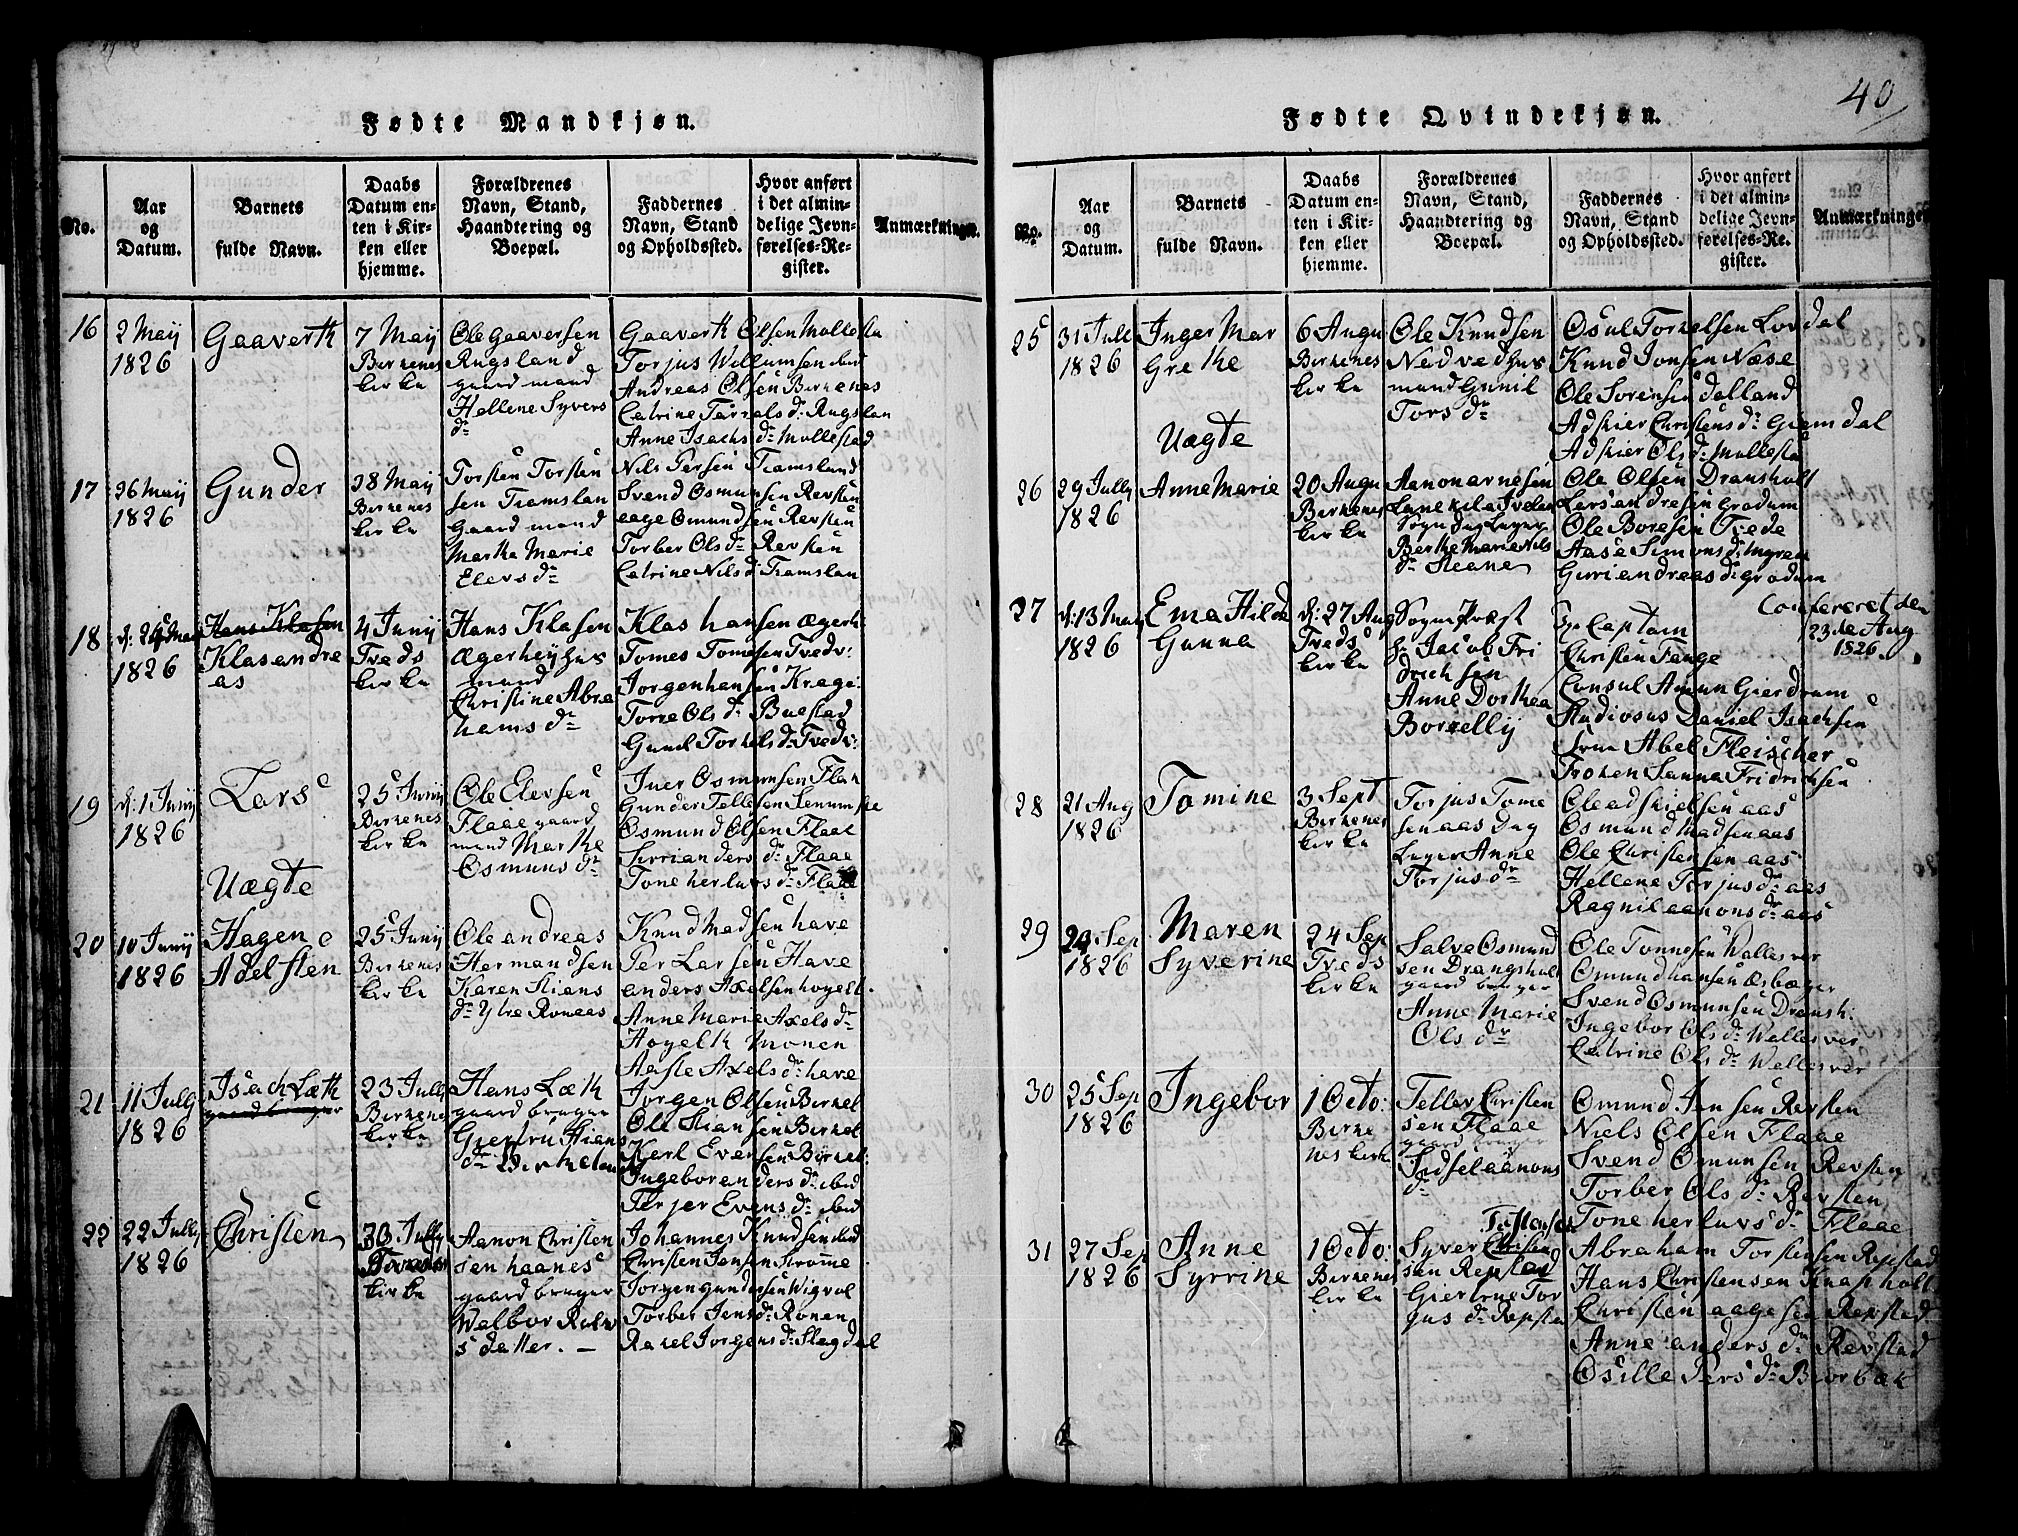 40
Fødte Mandkjøn.
No.
Aar
og
Datum.
Barnets
fulde Navn.
Daabs
Datum en-
ten i Kir-
ken eller
hjemme.
Forældrenes
Navn, Stand,
Haandtering og
Boepæl.
Faddernes
Navn, Stand
og Opholdssted.
Hvor anført
i det almin-
delige Jevn-
førelses-Re-
gister.
Anmærkninger.
16
2 Maij
1826
Gaaverth
7 Maij
Birkenes
kirke
Ole Gaaversen
Rugsland
gaard mand
Hellene Syvers
dr
Gaaverth Olsen Mollesta
Torjus Wellumsen ibid
Andreas Olsen Birkenes
Catrine Terkels dr Rugslan
Anne Isachs dr Mollestad
17
26 Maij
1826
Gunder
28 Maij
Birkenes
kirke
Torsten Torsten
sen Tramslan
Gaard mand
Martha Marie
Elevs dr
Nils Persen Tramsland
Svend Osmunsen Revsten
aage Omundsen Revsten
Torber Ols dr Revsten
Catrine Nils d: Tramslan
18
d: 24 Maij
1826
Hans Klasen
Klasandre
as
4 Junij
Tveds
kirke
Hans Klasen
Ægerheij hus
mand
Christine Abra
hams dr
Klas hansen Ægerh:
Tomes Tomesen Tvedv:
Jorgenhansen Krage:
Torre Ols dr Buestad
Gunil Torkels dr Tvedv:
19
d: 1 Junij
1826
Lars
25 Junij
Birkenes
kirke
Ole Elevsen
Flaae gaard
mand Marthe
Osmuns dr
Iver Osmunsen Flaa
Gunder Tellefsen Senumste
Osmund Olsen Flaae
Sirri anders dr Flaae
Tone herluvs dr Flaae
Uægte
20
10 Junij
1826
Hagen
Adelsten
25 Junij
Birkenes
kirke
Ole andreas
Hermandsen
Karen Stians
dr Ytre Roneas
Knud Madsen have
Per Larsen Have
anders Axelsen hoyelt.
Anne Marie Axels dr
Hoyelth Monen
Aasle Axels dr have
21
11 Jully
1826
Isach Læth
gaard bruger
23 Jully
Birkenes
kirke
Hans Læth
gaard bruger
Giertru Stians
dr Birkeland
Jorgen Olsen Birkel
Ole Stiansen Birkel
Karl Evensen Birkel:
Ingebor anders dr ibid
Terjer Evens dr ibid
22
22 Jully
1826
Christen
30 Jully
Tveds
kirke
Aanon Christen
sen haanes
gaard bruger
Welbor Rolvs
s datter. —
Johannes Knudsen ibid
Christen Jensen Stromme
Jorgen gundersen Wigvol
Torber Jens dr Ronen
Raxel Jorgens dr Slagdal
Fødte Qvindekjøn.
No.
Aar
og
Datum.
Barnets
fulde Navn.
Daabs
Datum en-
ten i Kir-
ken eller
hjemme.
Forældrenes
Navn, Stand,
Haandtering og
Boepæl.
Faddernes
Navn, Stand
og Opholdssted.
Hvor anført
i det almin-
delige Jevn-
førelses-Re-
gister.
Anmærkninger
25
31 Jull
1826
Inger Mar
Grethe
6 Augu
Birkenes
kirke
Ole Knudsen
Nedved hus
mand Gunil
Tors dr
Osul Torkelsen Lovdal
Knud Jonsen Næse
Ole Sorensen dalland
Adskier Christens dr Giemdal
Adskier Ols dr Mollesta
Uægte
26
29 Jully
1826
Anne Marie
20 Augu
Birkenes
kirke
Aanon arnesen
Berthe Marie Nils
dr Steane
Ole Olsen Dransholt
Lars andresen Grodum
Ole Boresen Tvede
Aase Simons d:
Guri andreas d: grodum
27
d: 13 Maij
1826
Ema Hilde
Gunna
d: 27 Aug
Tveds
kirke
Sogne Præst
hr Jacob Fri
drichsen
Anne Dorthea
Borrelly
Hr Captam
Christen Fange
Consul Amun Gierdrum
Studiosus Daniel Isachsen
Frue Abel Fleischer
Froken Sanna Fridrichsen
Confereret den
23de Aug
1826.
28
21 Aug
1826
Tomine
3 Sept
Birkenes
kirke
Torjus Tome
sen aas Dag
Leger Anne
Torjus dr
Ole adskielsen aas
Osmund Madsen aas
Ole Christensen aas
Hellene Torjus dr aas
Ragnil aanons dr aas
29
Sep
1826
Maren
Syverine
24 Sep
Tveds
kirke
Salve Osmund
sen Drangsholt
gaard bruger
Anne Marie
Ols dr
Ole Tonnesen Wallesver
Omund hansen Æsbæger
Svend Osmunsen Dransh:
Ingebor Ols dr Wallesver
Catrine Ols dr Wallesver
30
25 Sep
1826
Ingebor
1 Octo:
Birke
nes kirk
Tellev Christen
sen Flaae
gaard bruger
Sidsel aanons
dr
Omund Jensen Revsten
Niels Olsen Flaae
Svend Omunsen Revsten
Torber Ols dr Revsten
Tone herluvs dr Flaae
31
27 Sep
1826
Anne
Syrrine
1 Octo:
Birkenes
kirke
Tostensen
Syver Christen
sen Repstad
Giertrue Tor
gus dr Repsta
Abraham Torstensen Repstad
Hans Christensen Knapholt
Christen aagesen Repstad
Anne anders dr Revstad
Osille Pers dr Biorbak